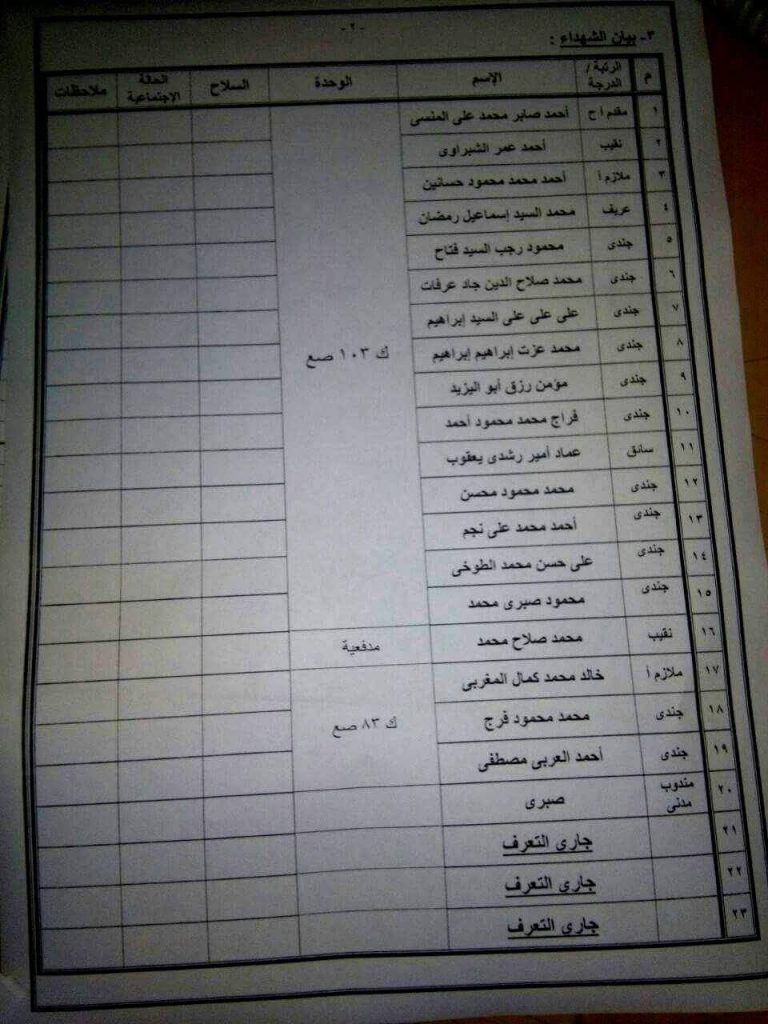 - ٢ -
٣- بيان الشهداء :
م | الرتبة / الدرجة | الإسم | الوحدة | السلاح | الحالة الإجتماعية | ملاحظات
١ | مقدم أ ح | أحمد صابر محمد على المنسى | ك ١٠٣ صع
٢ | نقيب | أحمد عمر الشبراوى
٣ | ملازم أ | أحمد محمد محمود حسانين
٤ | عريف | محمد السيد إسماعيل رمضان
٥ | جندى | محمود رجب السيد فتاح
٦ | جندى | محمد صلاح الدين جاد عرفات
٧ | جندى | على على على السيد إبراهيم
٨ | جندى | محمد عزت إبراهيم إبراهيم
٩ | جندى | مؤمن رزق أبو اليزيد
١٠ | جندى | فراج محمد محمود أحمد
١١ | سائق | عماد أمير رشدى يعقوب
١٢ | جندى | محمد محمود محسن
١٣ | جندى | أحمد محمد على نجم
١٤ | جندى | على حسن محمد الطوخى
١٥ | جندى | محمود صبرى محمد
١٦ | نقيب | محمد صلاح محمد | مدفعية
١٧ | ملازم أ | خالد محمد كمال المغربى | ك ٨٣ صع
١٨ | جندى | محمد محمود فرج
١٩ | جندى | أحمد العربى مصطفى
٢٠ | مندوب مدنى | صبرى
٢١ | جارى التعرف
٢٢ | جارى التعرف
٢٣ | جارى التعرف